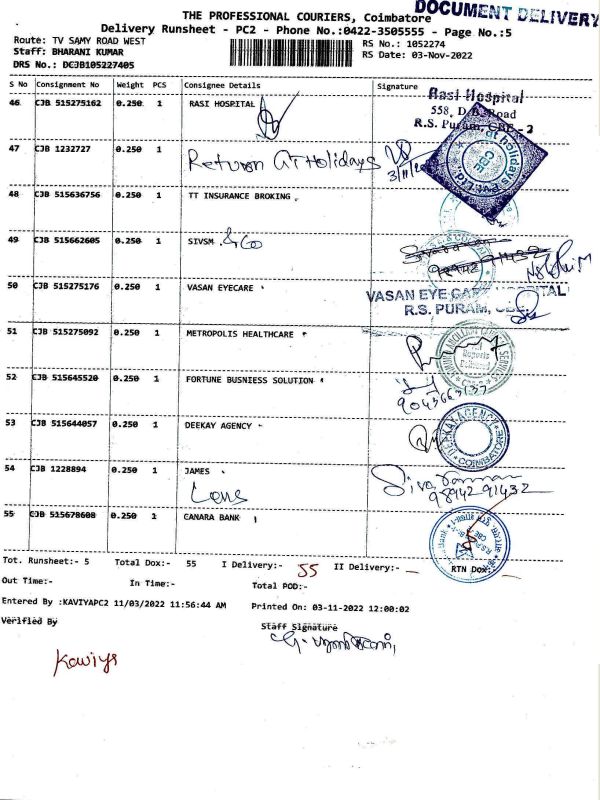 DOCUMENT DELIVERY
THE PROFESSIONAL COURIERS, Coimbatore
Delivery Runsheet - PC2 - Phone No.:0422-3505555 - Page No.:5
Route: TV SAMY ROAD WEST
Staff: BHARANI KUMAR
DRS No.: DCJB105227405
RS No.: 1052274
RS Date: 03-Nov-2022
S No Consignment No Weight PCS Consignee Details Signature
46 CJB 515275162 0.250 1 RASI HOSPITAL
Rasi Hospital
558, D.B. Road
R.S. Puram, CBE - 2
47 CJB 1232727 0.250 1 Return At Holidays
at holidays Pvt Ltd
CBE
48 CJB 515636756 0.250 1 TT INSURANCE BROKING
49 CJB 515662605 0.250 1 SIVSM & Co
50 CJB 515275176 0.250 1 VASAN EYECARE
VASAN EYE CARE HOSPITAL
R.S. PURAM, CBE
51 CJB 515275092 0.250 1 METROPOLIS HEALTHCARE
52 CJB 515645520 0.250 1 FORTUNE BUSNIESS SOLUTION
9043663137
53 CJB 515644057 0.250 1 DEEKAY AGENCY
DEEKAY AGENCY
COIMBATORE
54 CJB 1228894 0.250 1 JAMES
Lens
98942 91432
55 CJB 515678608 0.250 1 CANARA BANK
Tot. Runsheet:- 5 Total Dox:- 55 I Delivery:- 55 II Delivery:- RTN Dox:-
Out Time:- In Time:- Total POD:-
Entered By :KAVIYAPC2 11/03/2022 11:56:44 AM Printed On: 03-11-2022 12:00:02
Verified By Staff Signature
Kaviya